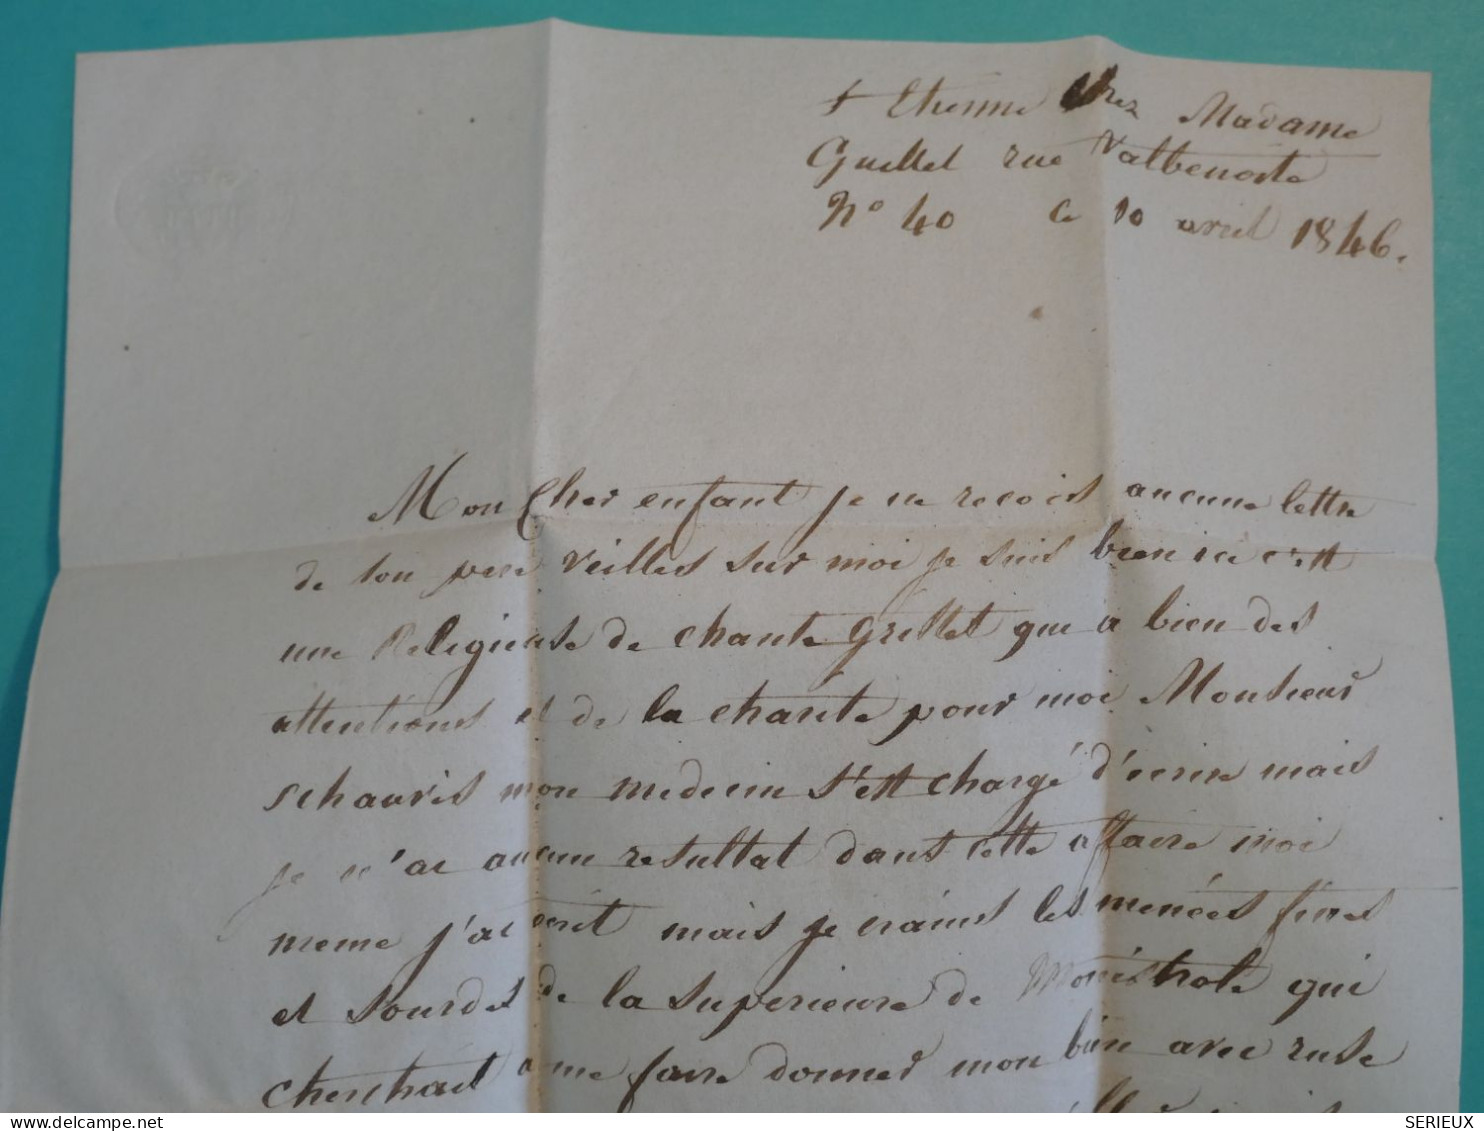 St Etienne chez Madame
Guillet rue Valbenoite
N° 40 Ce 10 avril 1846.
Mon Cher enfant je ne recois aucune lettre
de ton pere veilles sur moi je suis bien ici c'est
une Religieuse de chante Grillet qui a bien des
attentions et de la charite pour moi Monsieur
schauris mon medecin s'est chargé d'ecrire mais
je n'ai aucun resultat dans cette affaire moi
meme j'ai ecrit mais je crains les menées fines
et sourdes de la superieure de Monistrole qui
cherchait a me faire donner mon bien avec ruse
SERIEUX